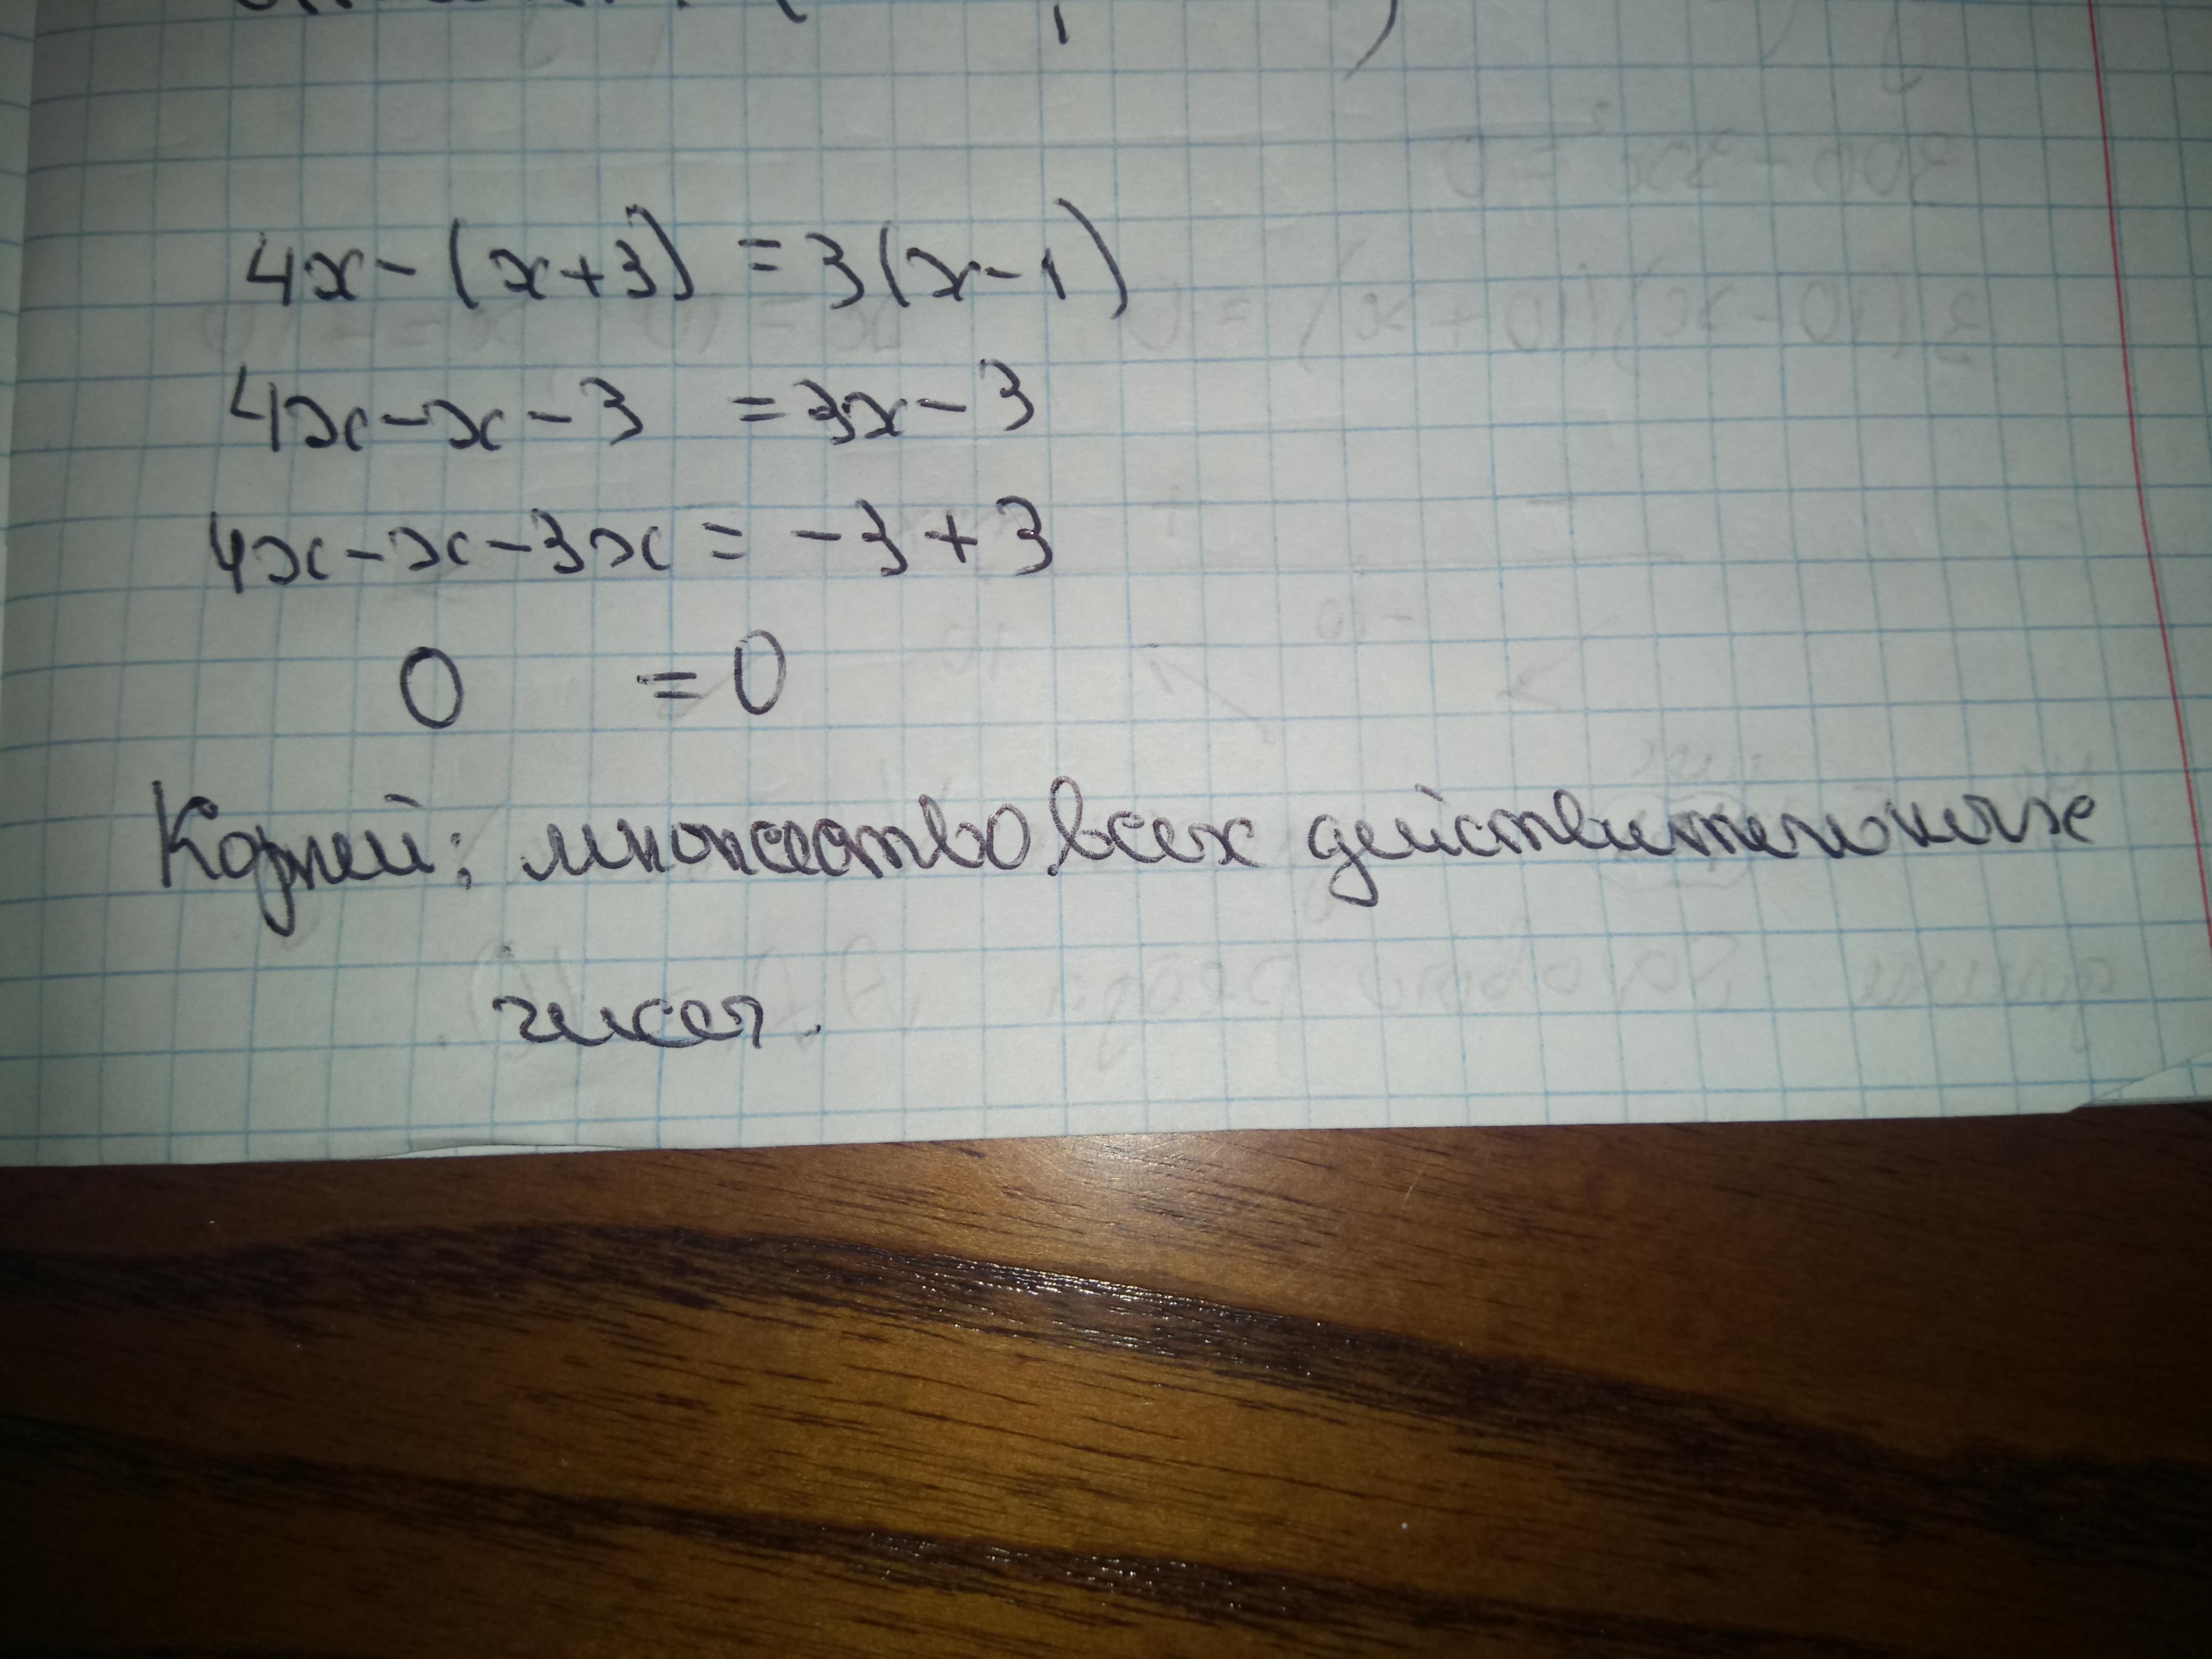 4x-(x+3) = 3(x-1)
4x-x-3 = 3x-3
4x-x-3x = -3+3
0 = 0
Корней: множество всех действительных
чисел.